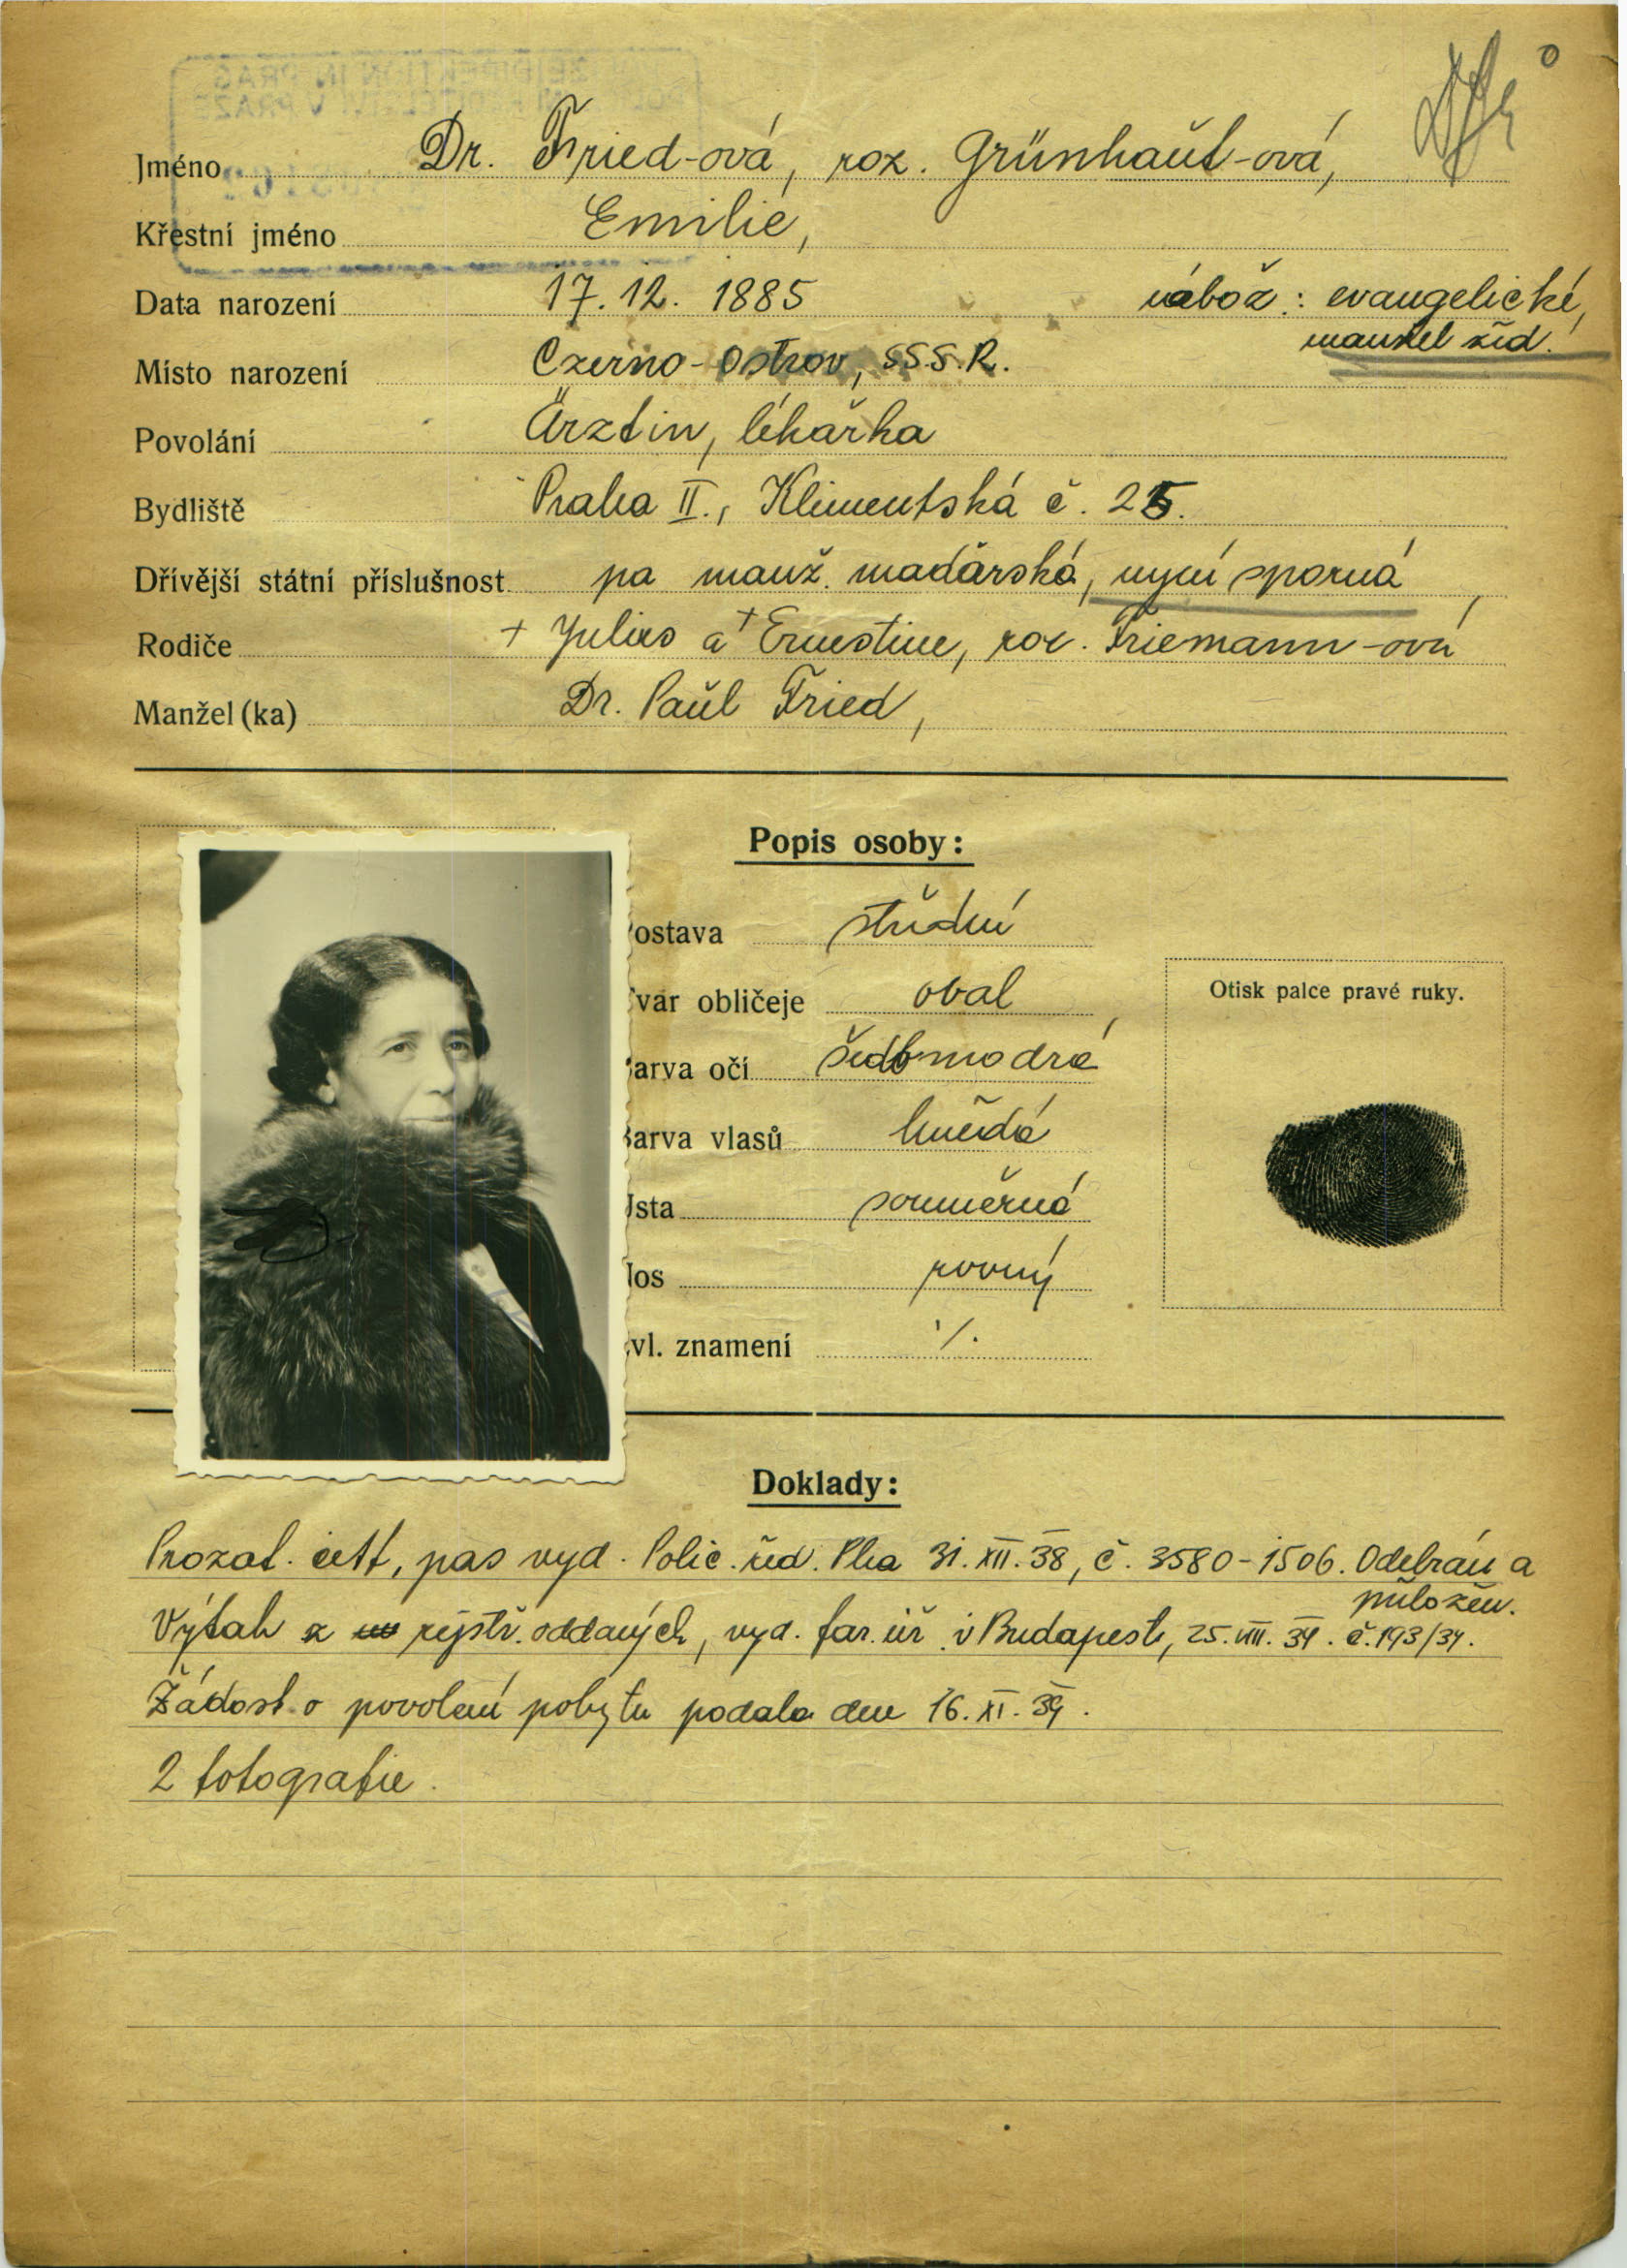 Jméno Dr. Fried-ová, roz. Grünhaŭt-ová,
Křestní jméno Emilie,
Data narození 17. 12. 1885 nábož.: evangelické,
manžel žid.
Místo narození Czerno-Ostrov, S.S.S.R.
Povolání Ärztin, lékařka
Bydliště Praha II., Klimentská č. 25.
Dřívější státní příslušnost pa manž. maďarská, nyní sporná
Rodiče + Julius a + Ernestine, roz. Friemann-ová
Manžel (ka) Dr. Paŭl Fried,
Popis osoby:
ostava střední
var obličeje oval
arva očí šedomodré
arva vlasů hnědá
sta souměrná
os rovný
vl. znamení ·/.
Otisk palce pravé ruky.
Doklady:
Prozat. pas vyd. Polic. řed. Pha 31. XII. 38, č. 3580-1506. Odebrán a
přiložen.
Výtah z rejstř. oddaných, vyd. far. úř. v Budapest, 25. VIII. 34. č. 193/34.
Žádost o povolení pobytu podala dne 16. XI. 39.
2 fotografie.